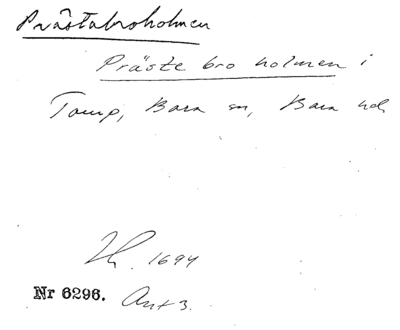 Prästabroholmen
Präste bro holmen i
Torup, Bara sn, Bara hd
Lk. 1694
Nr 6296. Ant 3.